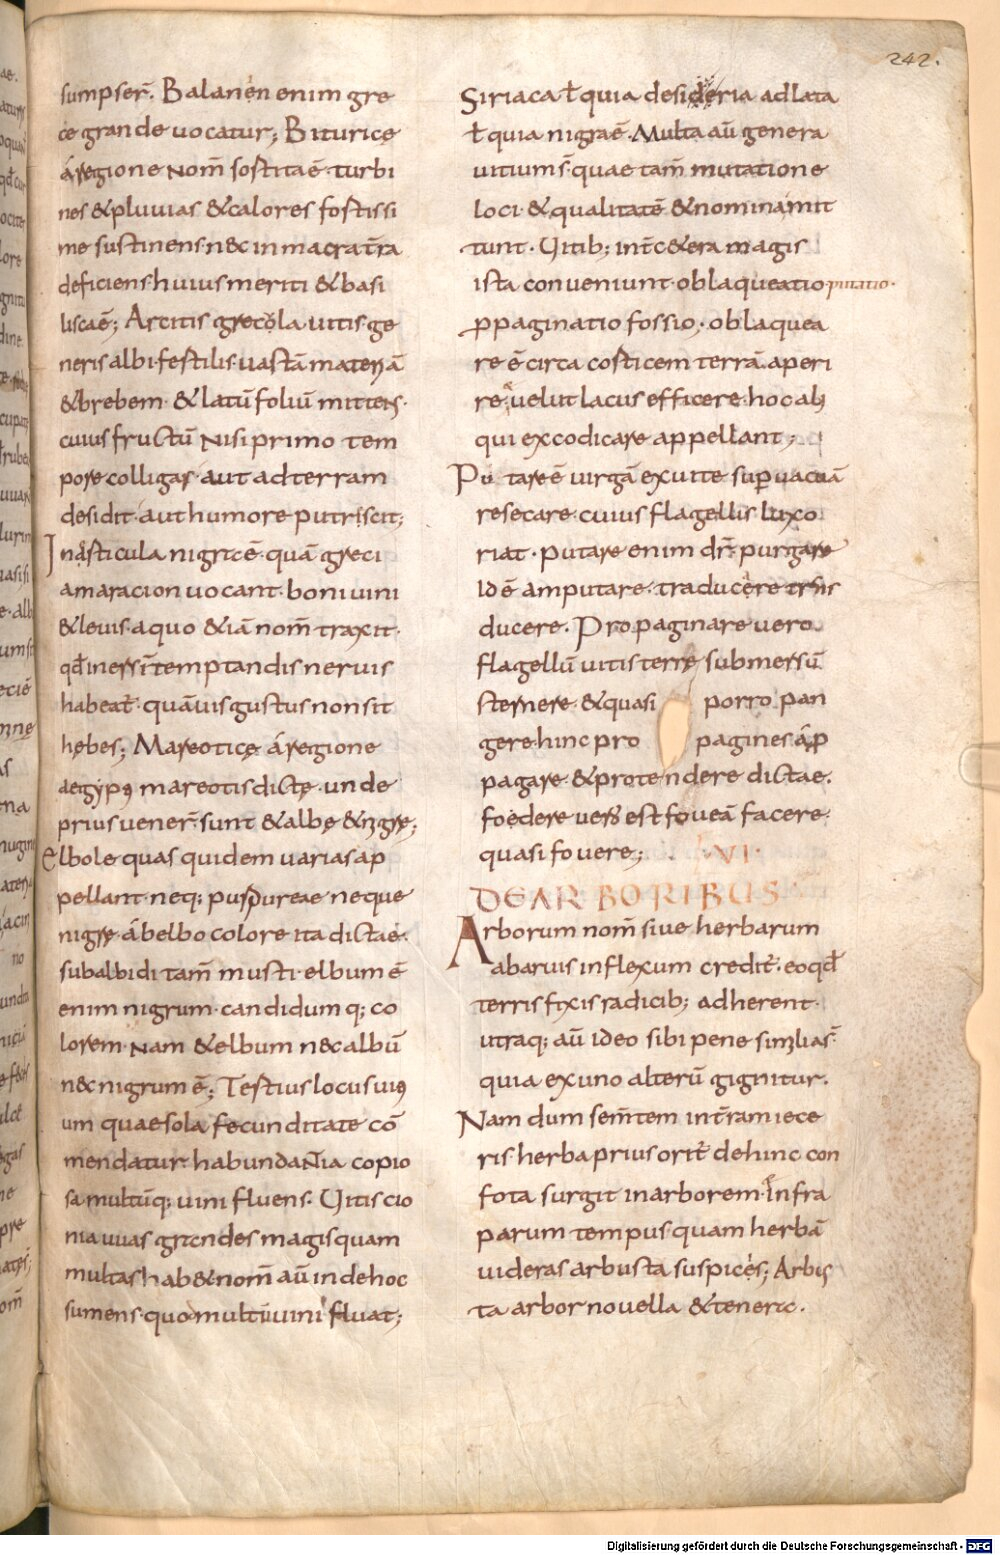 242.
sumpser̄. Balanen enim gre
ce grande uocatur; Biturice
a regione nom̄ sostitaē turbi
nes & pluuias & calores fostissi
me sustinens n&c in macra tr̄a
deficiens huius meriti & basi
liscaē; Arcitis grecola uitis ge
neris albi festilis uastā materiā
& brebem & latū foliū mittens
cuius fructū nisi primo tem
pore colligas aut ad terram
desidit aut humore putriscit;
Inasticula nigrcē quā greci
amaracion uocant boni uini
& leuis a quo & iā nom̄ traxit
qđ iners in temptandis neruis
habeat̄ quāuis gustus non sit
hębes; Mareoticę a regione
aegypti mareotis dictę unde
prius uener̄ sunt & albę & nigrę;
Elbole quas quidem uarias ap
pellant neq; puspureae neque
nigrę ab elbo colore ita dictae
subalbidi tam̄ musti elbum ē
enim nigrum candidum q; co
lorem Nam & elbum n&c albū
n&c nigrum ē; Testius locus uius
um quae sola fecunditate cō
mendatur habundantia copio
sa multūq; uini fluens. Uitis cio
nia uuas grcendes magis quam
multas hab& nom̄ aū inde hoc
sumens quo multū uini fluat;
Siriaca ł quia desideria adlata
ł quia nigraē. Multa aū genera
uitium s̄ quae tam̄ mutatione
loci & qualitatē & nomina mit
tunt. Uitib; int̄ c&era magis
ista conueniunt oblaqueatio putatio.
ꝓpaginatio fossio; oblaquea
re ē circa costicem terrā aperi
re uelut lacus efficere hoc ali
qui excodicare appellant;
Putare ē uirgā ex uite suꝑuacuā
resecare cuius flagellis luxo
riat. putare enim dr̄ purgare
id ē amputare traducere trans
ducere. Propaginare uero
flagellū uitis terrę submersū
sternere & quasi porro pan
gere hinc pro pagines a ꝓ
pagare & protendere dictae.
foedere uero est foueā facere
quasi fouere; VI.
DE ARBORIBUS
Arborum nom̄ siue herbarum
ab aruis inflexum credit̄. eoqđ
terris fixis radicib; adherent
utraq; aū ideo sibi pene similia s̄
quia ex uno alterū gignitur.
Nam dum sem̄tem in tr̄am iece
ris herba prius orit̄ dehinc con
fota surgit in arborem Infra
parum tempus quam herbā
uideras arbusta suspices; Arbus
ta arbor nouella & tenerc.
Digitalisierung gefördert durch die Deutsche Forschungsgemeinschaft - DFG